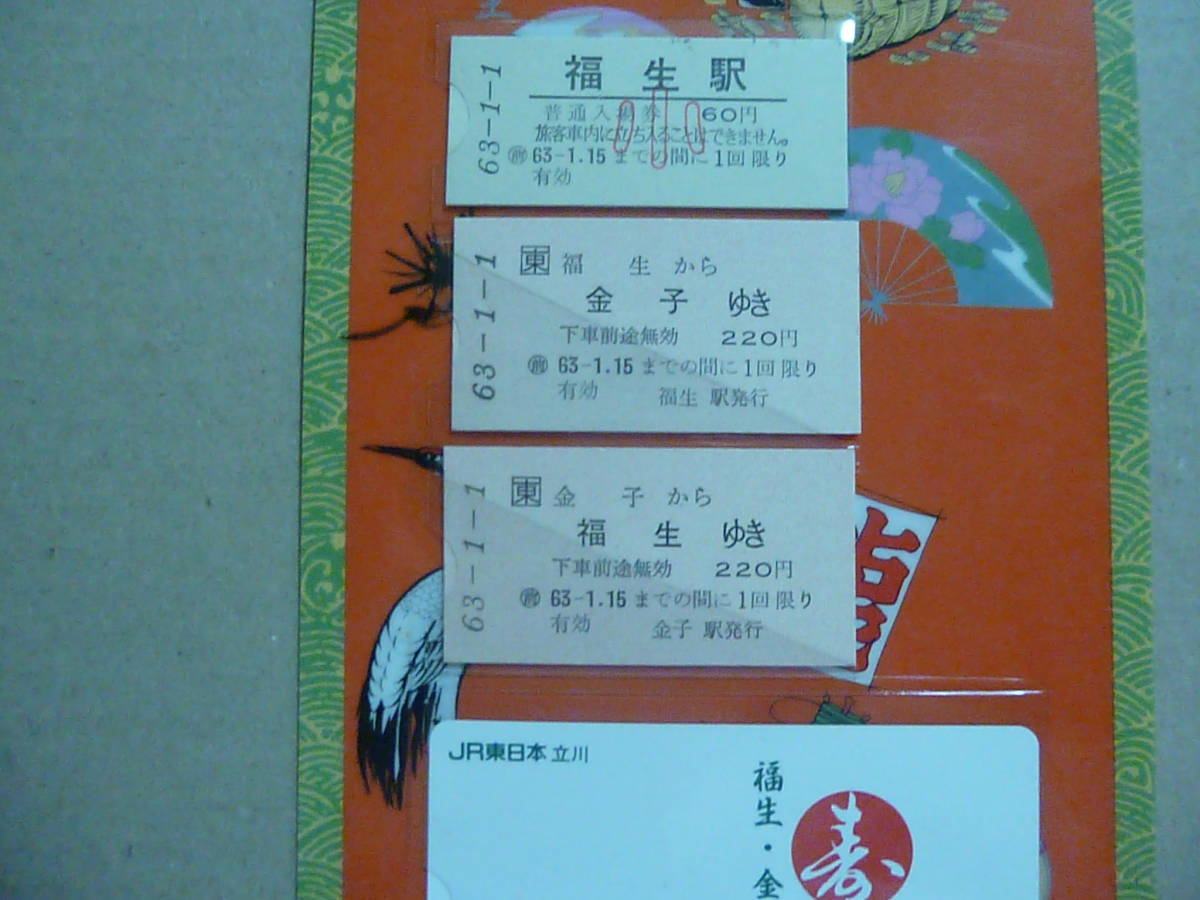 福生駅
63-1-1
普通入場券 60円
小
旅客車内に立ち入ることはできません。
㊝63-1.15までの間に1回限り
有効
63-1-1
東 福生から
金子ゆき
下車前途無効 220円
63-1.15までの間に1回限り
有効 福生駅発行
63-1-1
東 金子から
福生ゆき
下車前途無効 220円
63-1.15までの間に1回限り
有効 金子駅発行
JR東日本 立川
福生・金
寿